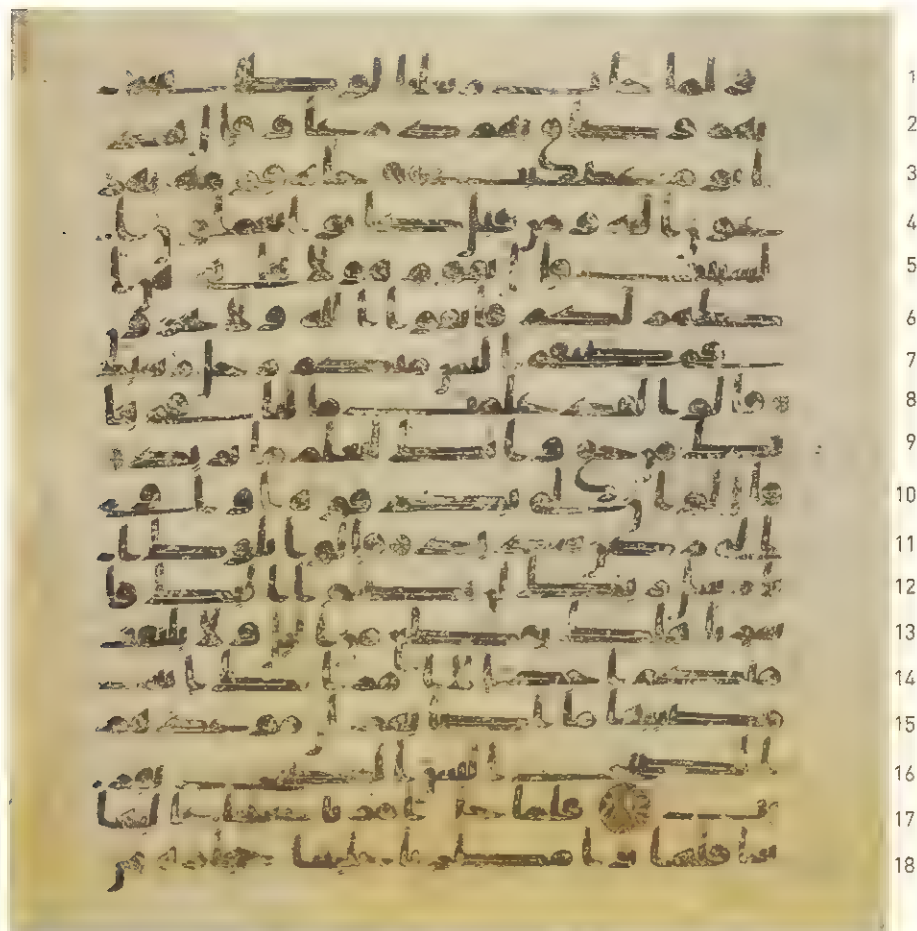 ولما جات رسلنا لوطا سى 1
بهم وضاق بهم ذرعا وقال هذ 2
ا يوم عصيب وجاه قومه يهر 3
عون اليه ومن قبل كانوا يعملون ا 4
لسيت قال يقوم هولا بناتى هن ا 5
طهر لكم فاتقوا الله ولا تخزو 6
ن فى ضيفى اليس منكم رجل رشيد 7
قالوا لقد علمت ما لنا فى بنا 8
تك من حق وانك لتعلم ما نريد 9
قال لو ان لى بكم قوة او اوى 10
الى ركن شديد قالوا يلوط انا 11
رسل ربك لن يصلوا اليك فا 12
سر باهلك بقطع من اليل ولا يلتفت 13
منكم احد الا امراتك انه 14
مصيبها ما اصابهم ان موعدهم 15
الصبح اليس الصبح بقر 16
يب فلما جا امرنا جعلنا عليها 17
سافلها وامطرنا عليها حجارة من 18